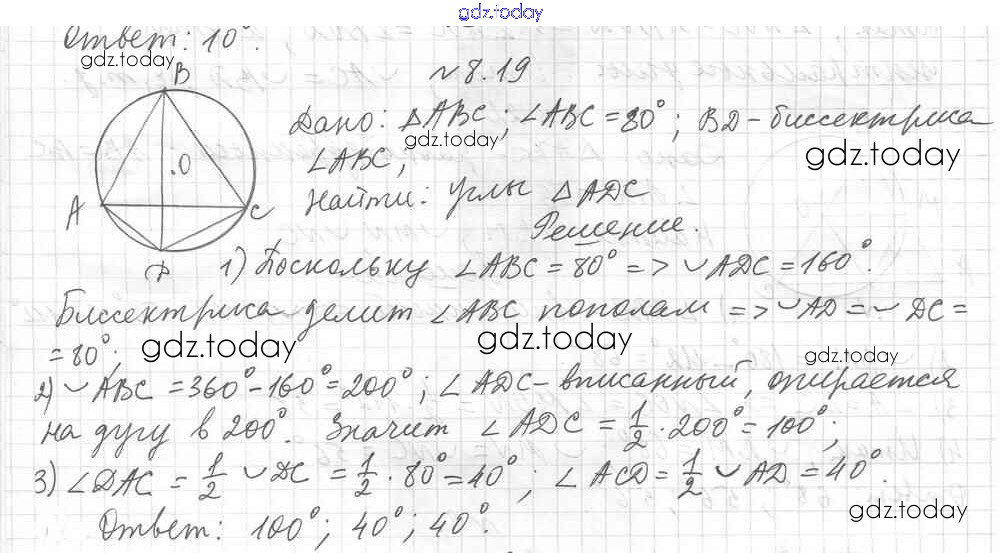 gdz.today
Ответ: 10°.
gdz.today
№8.19
B
Дано: △ABC; ∠ABC = 80°; BD - биссектриса
gdz.today
gdz.today
∠ABC;
.O
Найти: углы △ADC
A
C
Решение.
D
1) Поскольку ∠ABC = 80° => ◡ADC = 160°.
Биссектриса делит ∠ABC пополам => ◡AD = ◡DC =
= 80°;
gdz.today
gdz.today
gdz.today
2) ◡ABC = 360° - 160° = 200°; ∠ADC - вписанный, опирается
на дугу в 200°. Значит ∠ADC = 1/2 · 200° = 100°;
3) ∠DAC = 1/2 ◡DC = 1/2 · 80° = 40°; ∠ACD = 1/2 ◡AD = 40°.
gdz.today
Ответ: 100°; 40°; 40°.